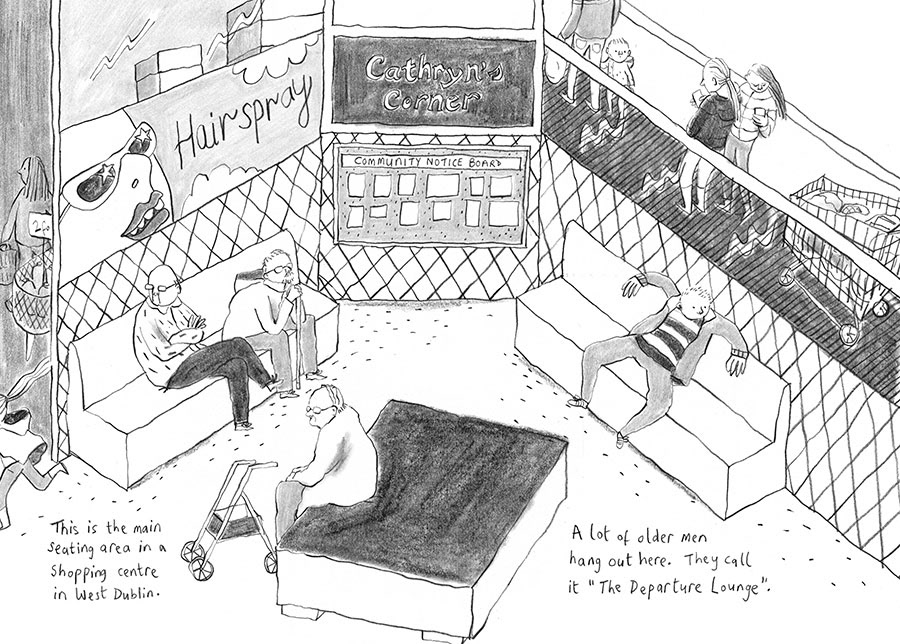 Hairspray
Cathryn's
Corner
COMMUNITY NOTICE BOARD
This is the main
seating area in a
shopping centre
in West Dublin.
A lot of older men
hang out here. They call
it "The Departure Lounge".